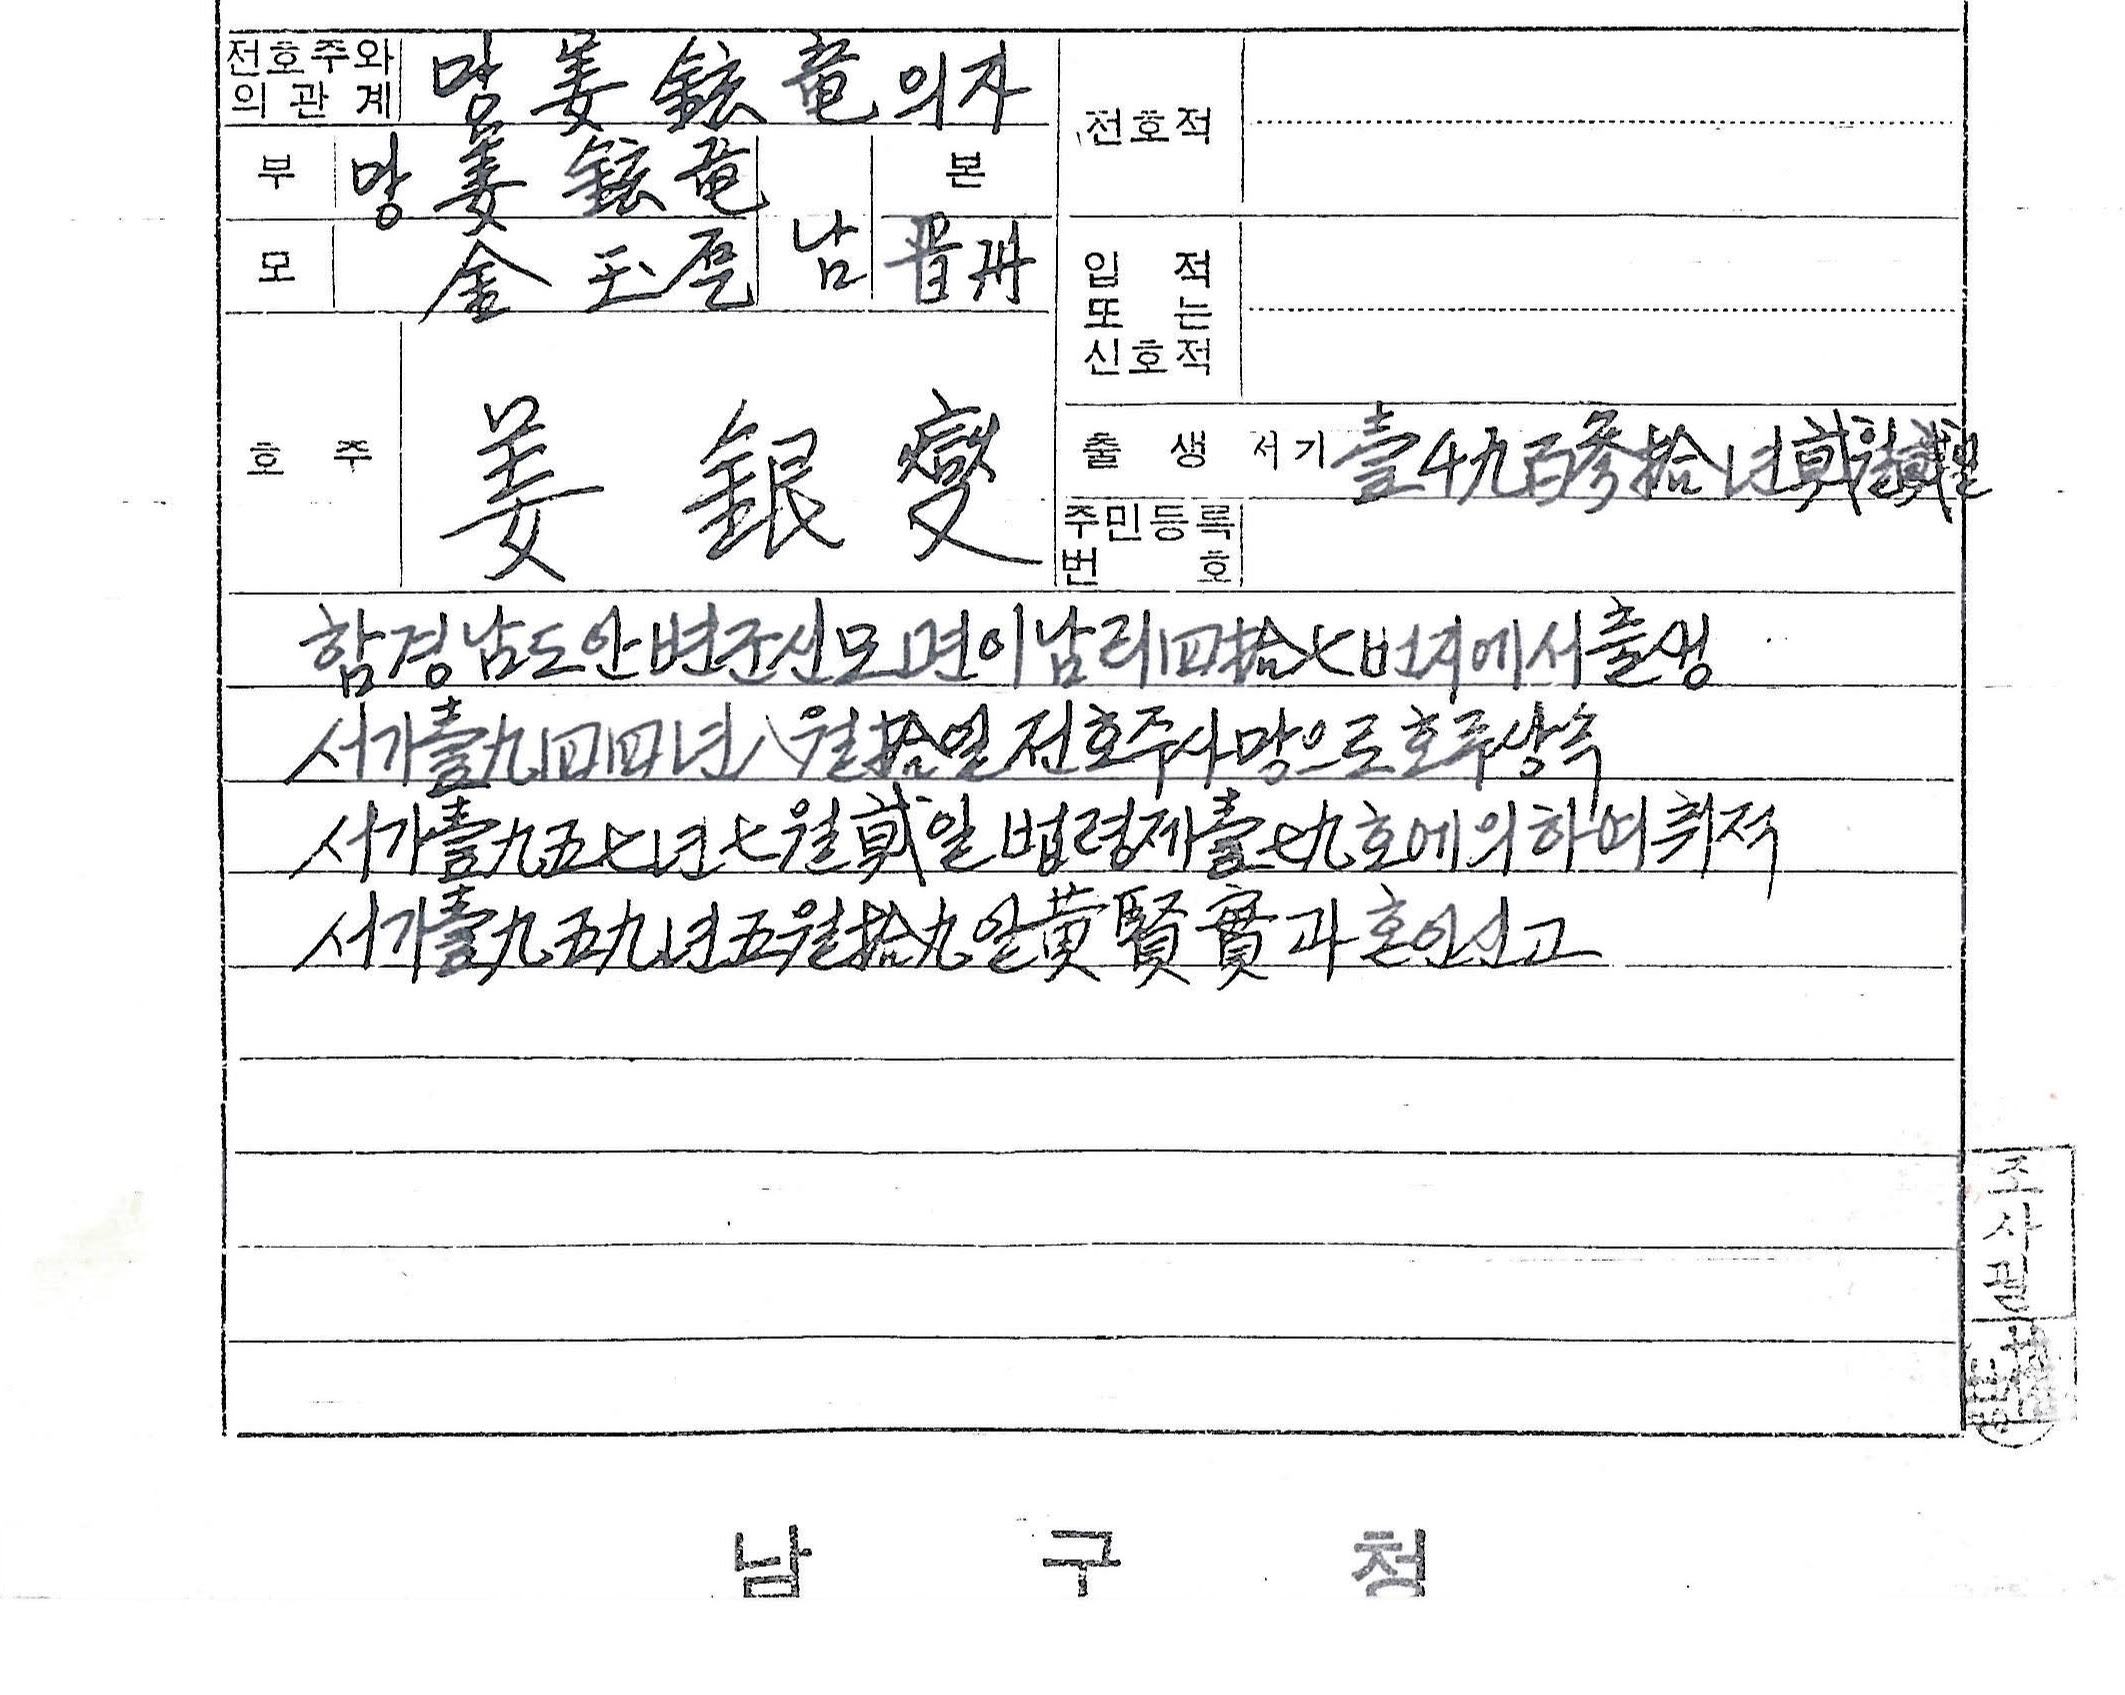 전호주와의 관계 망 姜鉉竜의자
전호적
부 망 姜鉉竜
남
본 晋州
모 金玉
입적 또는 신호적
호주 姜銀燮
출생 서기 壹千九百參拾년貳월貳일
주민등록번호
함경남도안변군신모면이남리四拾七번지에서출생
서기壹九四四년八월拾일전호주사망으로호주상속
서기壹九五七년七월貳일법령제壹七九호에의하여취적
서기壹九五九년五월拾九일黃賢寶과혼인신고
조사필
남구청